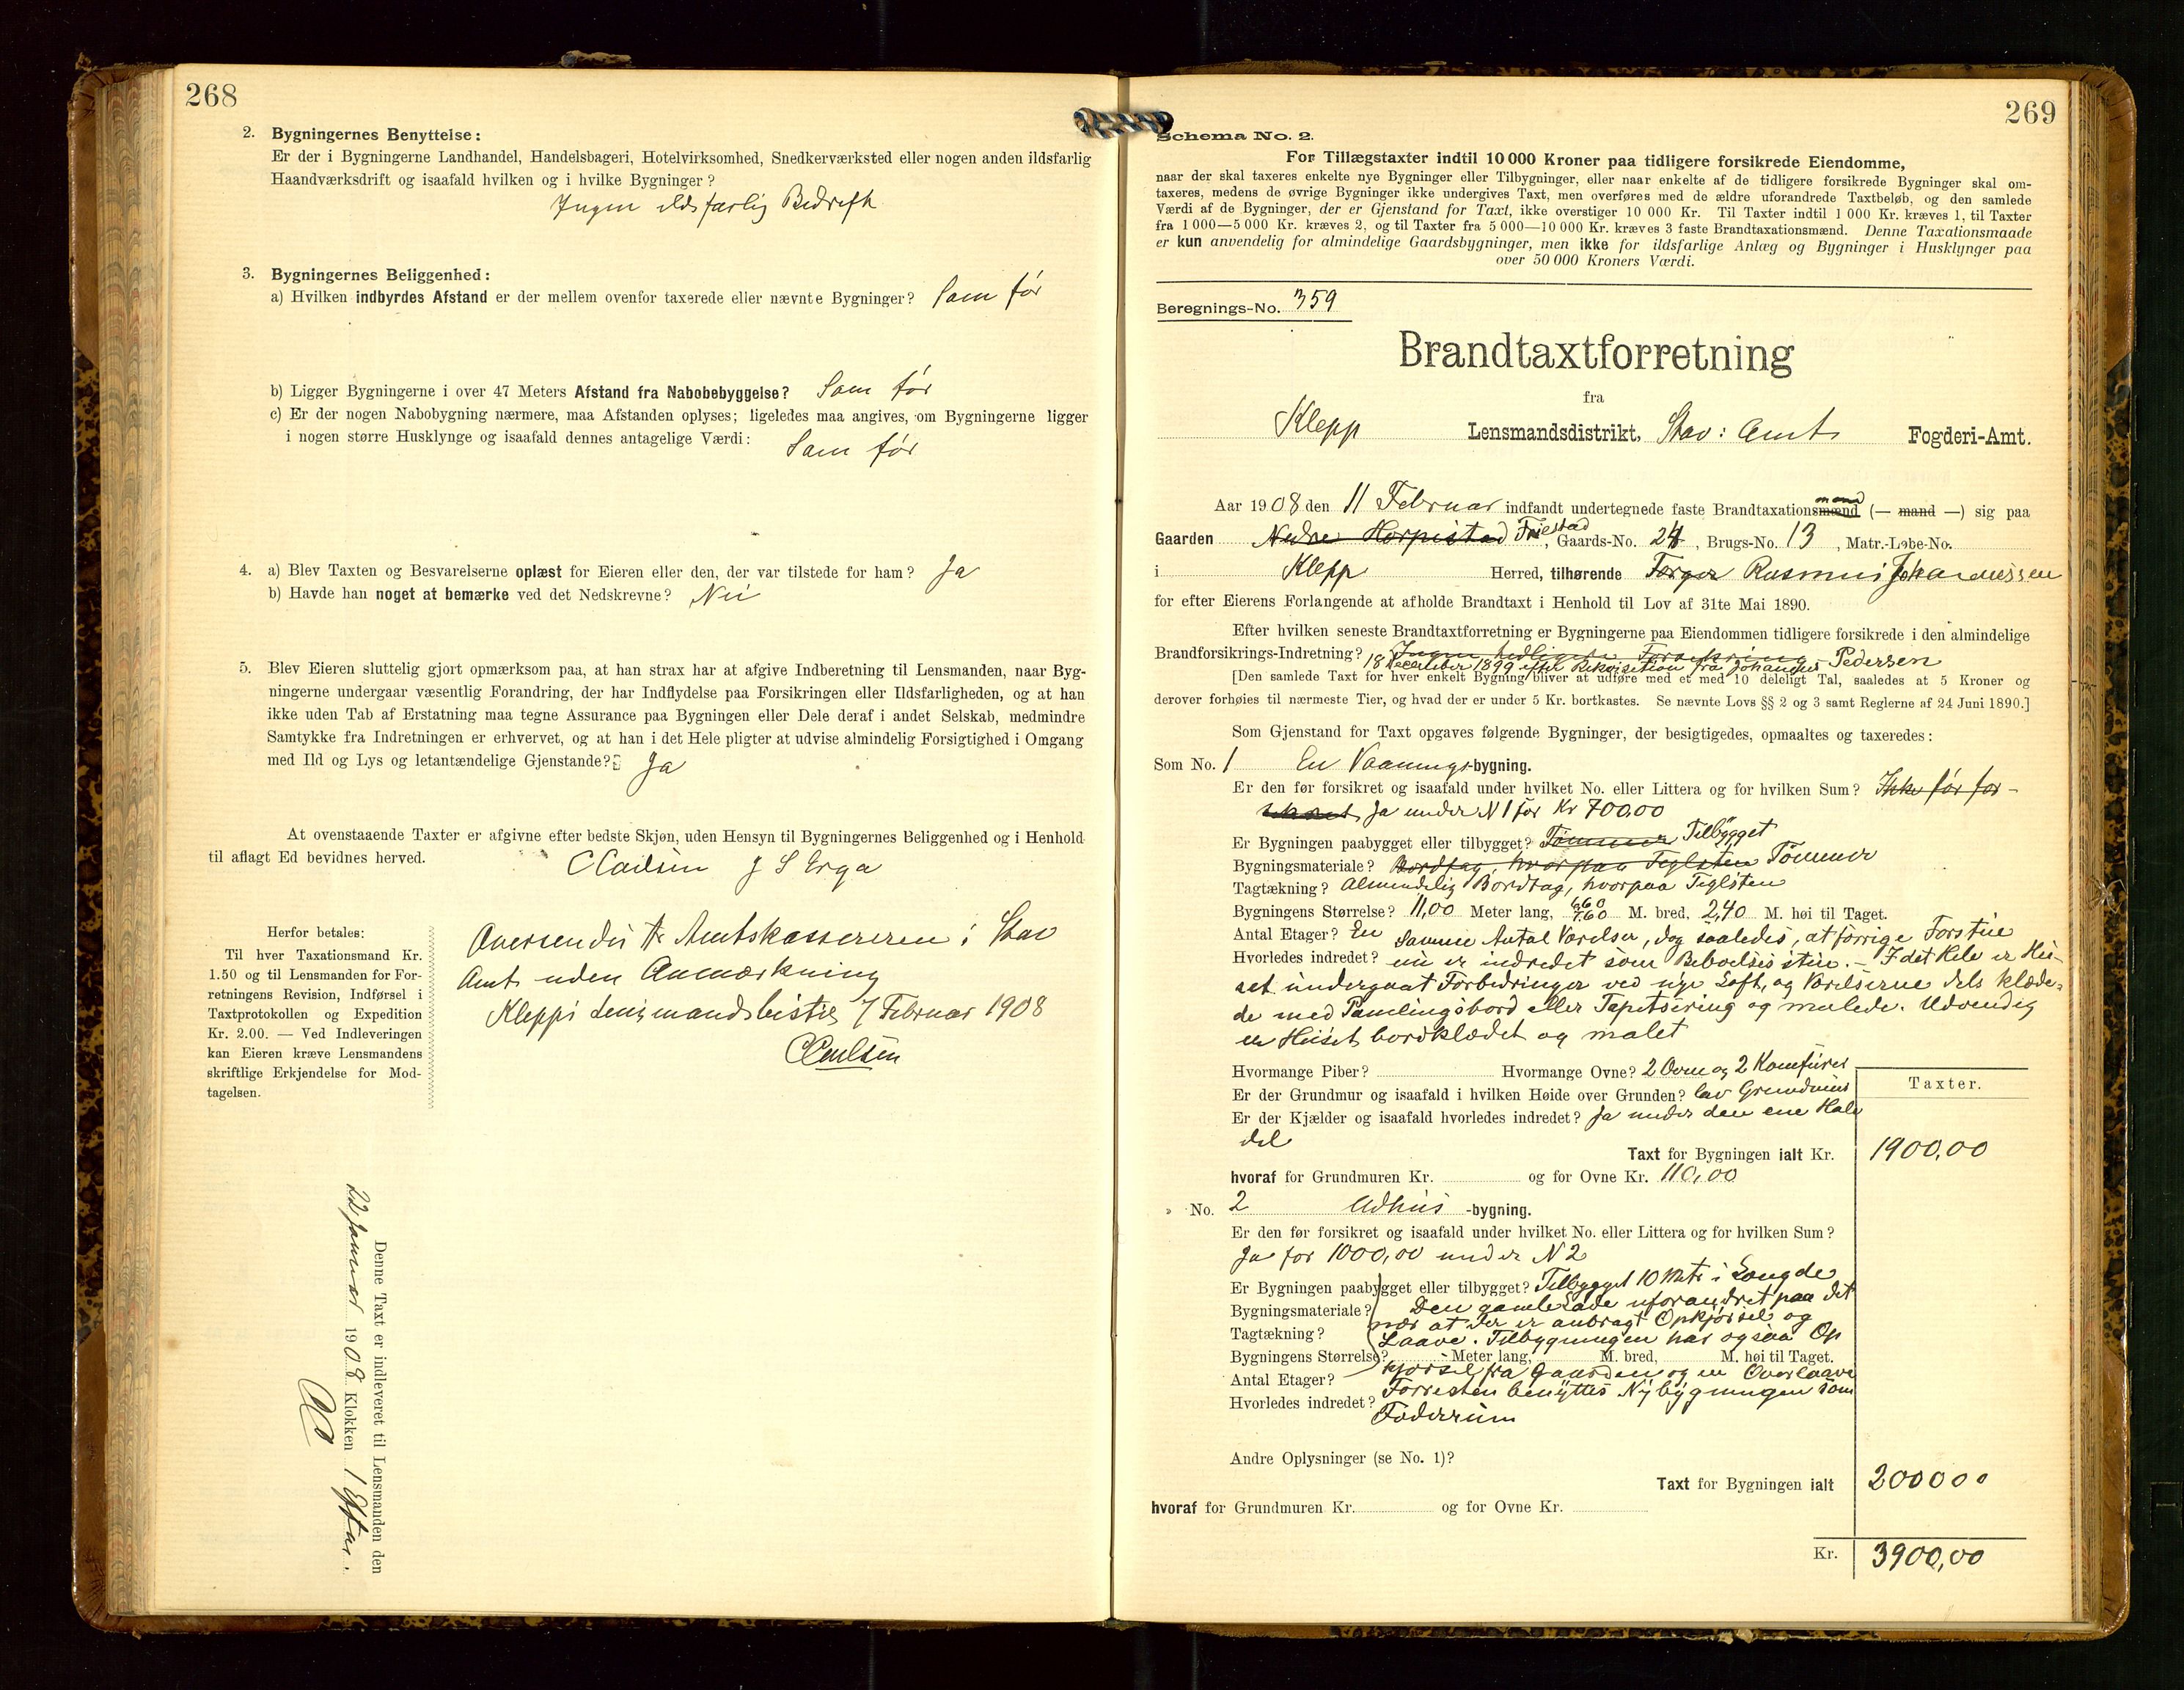 268
2. Bygningernes Benyttelse:
Er der i Bygningerne Landhandel, Handelsbageri, Hotelvirksomhed, Snedkerværksted eller nogen anden ildsfarlig
Haandværksdrift og isaafald hvilken og i hvilke Bygninger?
Ingen ildsfarlig Bedrift
3. Bygningernes Beliggenhed:
a) Hvilken indbyrdes Afstand er der mellem ovenfor taxerede eller nævnte Bygninger? Som før
b) Ligger Bygningerne i over 47 Meters Afstand fra Nabobebyggelse? Som før
c) Er der nogen Nabobygning nærmere, maa Afstanden oplyses; ligeledes maa angives, om Bygningerne ligger
i nogen større Husklynge og isaafald dennes antagelige Værdi: Som før
4. a) Blev Taxten og Besvarelserne oplæst for Eieren eller den, der var tilstede for ham? Ja
b) Havde han noget at bemærke ved det Nedskrevne? Nei
5. Blev Eieren sluttelig gjort opmærksom paa, at han strax har at afgive Indberetning til Lensmanden, naar Byg-
ningerne undergaar væsentlig Forandring, der har Indflydelse paa Forsikringen eller Ildsfarligheden, og at han
ikke uden Tab af Erstatning maa tegne Assurance paa Bygningen eller Dele deraf i andet Selskab, medmindre
Samtykke fra Indretningen er erhvervet, og at han i det Hele pligter at udvise almindelig Forsigtighed i Omgang
med Ild og Lys og letantændelige Gjenstande? Ja
At ovenstaaende Taxter er afgivne efter bedste Skjøn, uden Hensyn til Bygningernes Beliggenhed og i Henhold
til aflagt Ed bevidnes herved.
J S Erga
Herfor betales:
Til hver Taxationsmand Kr.
1.50 og til Lensmanden for For-
retningens Revision, Indførsel i
Taxtprotokollen og Expedition
Kr. 2.00. — Ved Indleveringen
kan Eieren kræve Lensmandens
skriftlige Erkjendelse for Mod-
tagelsen.
Oversendes Hr Amtskassereren i Stav
Amt uden Anmærkning
Klepps lensmandsbestil 7 Februar 1908
Denne Taxt er indleveret til Lensmanden den
22 Januar 1908 Klokken 1 Efter.
269
Schema No. 2.
For Tillægstaxter indtil 10 000 Kroner paa tidligere forsikrede Eiendomme,
naar der skal taxeres enkelte nye Bygninger eller Tilbygninger, eller naar enkelte af de tidligere forsikrede Bygninger skal om-
taxeres, medens de øvrige Bygninger ikke undergives Taxt, men overføres med de ældre uforandrede Taxtbeløb, og den samlede
Værdi af de Bygninger, der er Gjenstand for Taxt, ikke overstiger 10 000 Kr. Til Taxter indtil 1 000 Kr. kræves 1, til Taxter
fra 1 000—5 000 Kr. kræves 2, og til Taxter fra 5 000—10 000 Kr. kræves 3 faste Brandtaxationsmænd. Denne Taxationsmaade
er kun anvendelig for almindelige Gaardsbygninger, men ikke for ildsfarlige Anlæg og Bygninger i Husklynger paa
over 50 000 Kroners Værdi.
Beregnings-No. 359
Brandtaxtforretning
fra
Klepp Lensmandsdistrikt, Stav: Amt Fogderi-Amt.
Aar 1908 den 11 Februar indfandt undertegnede faste Brandtaxationsmænd mand (— mand —) sig paa
Gaarden Nedre Horpestad Friestad, Gaards-No. 24, Brugs-No. 13, Matr.-Løbe-No.
i Klepp Herred, tilhørende Torger Rasmus Johannessen
for efter Eierens Forlangende at afholde Brandtaxt i Henhold til Lov af 31te Mai 1890.
Efter hvilken seneste Brandtaxtforretning er Bygningerne paa Eiendommen tidligere forsikrede i den almindelige
Brandforsikrings-Indretning? Ingen tidligere Forsikring
18 December 1899 efter Rekvisition fra Johannes Pedersen
[Den samlede Taxt for hver enkelt Bygning bliver at udføre med et med 10 deleligt Tal, saaledes at 5 Kroner og
derover forhøies til nærmeste Tier, og hvad der er under 5 Kr. bortkastes. Se nævnte Lovs §§ 2 og 3 samt Reglerne af 24 Juni 1890.]
Som Gjenstand for Taxt opgaves følgende Bygninger, der besigtigedes, opmaaltes og taxeredes:
Som No. 1 En Vaanings-bygning.
Er den før forsikret og isaafald under hvilket No. eller Littera og for hvilken Sum? Ikke før for-
sikret Ja under N 1 for Kr 700,00
Er Bygningen paabygget eller tilbygget? Tømmer Tilbygget
Bygningsmateriale? Bordtag, hvorpaa Teglsten Tømmer
Tagtækning? Almindelig Bordtag, hvorpaa Teglsten
Bygningens Størrelse? 11,00 Meter lang, 6,60 7,60 M. bred, 2,40 M. høi til Taget.
Antal Etager? En
Hvorledes indredet? Samme Antal Værelser, dog saaledes, at forrige Forstue
nu er indredet som Beboelsesstue. – I det Hele er Hu-
set undergaat Forbedringer ved nye Loft, og Værelserne dels klæde-
de med Pamlingsbord eller Tapetsering og malede. Udvendig
er Huset bordklædet og malet
Hvormange Piber? Hvormange Ovne? 2 Ovne og 2 Komfurer
Er der Grundmur og isaafald i hvilken Høide over Grunden? lav Grundmur
Er der Kjælder og isaafald hvorledes indredet? Ja under den ene Halv
del
Taxter.
Taxt for Bygningen ialt Kr. 1900,00
hvoraf for Grundmuren Kr. og for Ovne Kr. 110,00
» No. 2 Udhus-bygning.
Er den før forsikret og isaafald under hvilket No. eller Littera og for hvilken Sum?
Ja for 1000,00 under N 2
Er Bygningen paabygget eller tilbygget? Tilbygget 10 Mtr i Længde
Bygningsmateriale? Den gamle Lade uforandret paa det
nær at der er anbragt Opkjørsel og
Tagtækning? Laave. Tilbygningen har ogsaa Op
Bygningens Størrelse? Meter lang, M. bred, M. høi til Taget.
Antal Etager? kjørsel fra Gaarden og en Overlaave
Hvorledes indredet? Forresten benyttes Nybygningen som
Foderrum
Andre Oplysninger (se No. 1)?
Taxt for Bygningen ialt 2000 00
hvoraf for Grundmuren Kr. og for Ovne Kr.
Kr. 3900,00